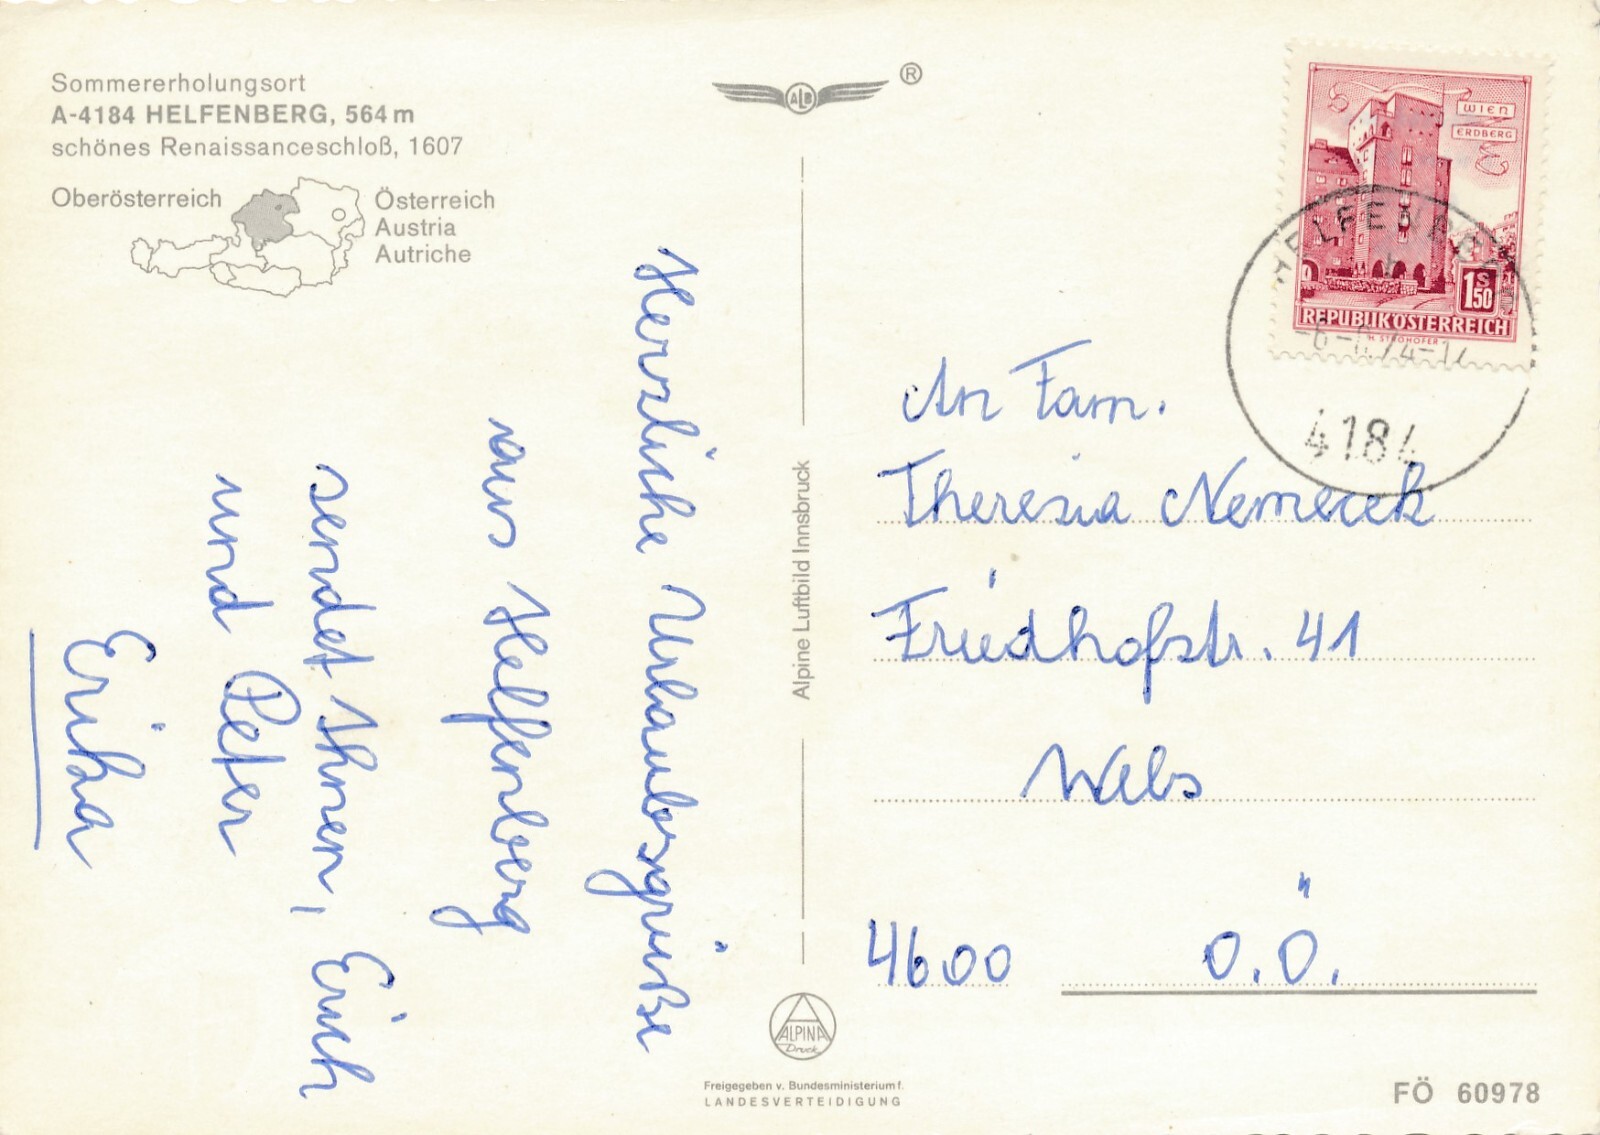 Sommererholungsort
A-4184 HELFENBERG, 564 m
schönes Renaissanceschloß, 1607
Oberösterreich
Österreich
Austria
Autriche
ALB
®
Herzliche Urlaubsgrüße
aus Helfenberg
sendet Ihnen, Erich
und Peter
Erika
Alpine Luftbild Innsbruck
ALPINA
Druck
Freigegeben v. Bundesministerium f.
LANDESVERTEIDIGUNG
WIEN
ERDBERG
1S50
REPUBLIK ÖSTERREICH
H. STROHOFER
HELFENBERG
4184
An Fam.
Theresia Nemecek
Friedhofstr. 41
Wels
4600 O.Ö.
FÖ 60978